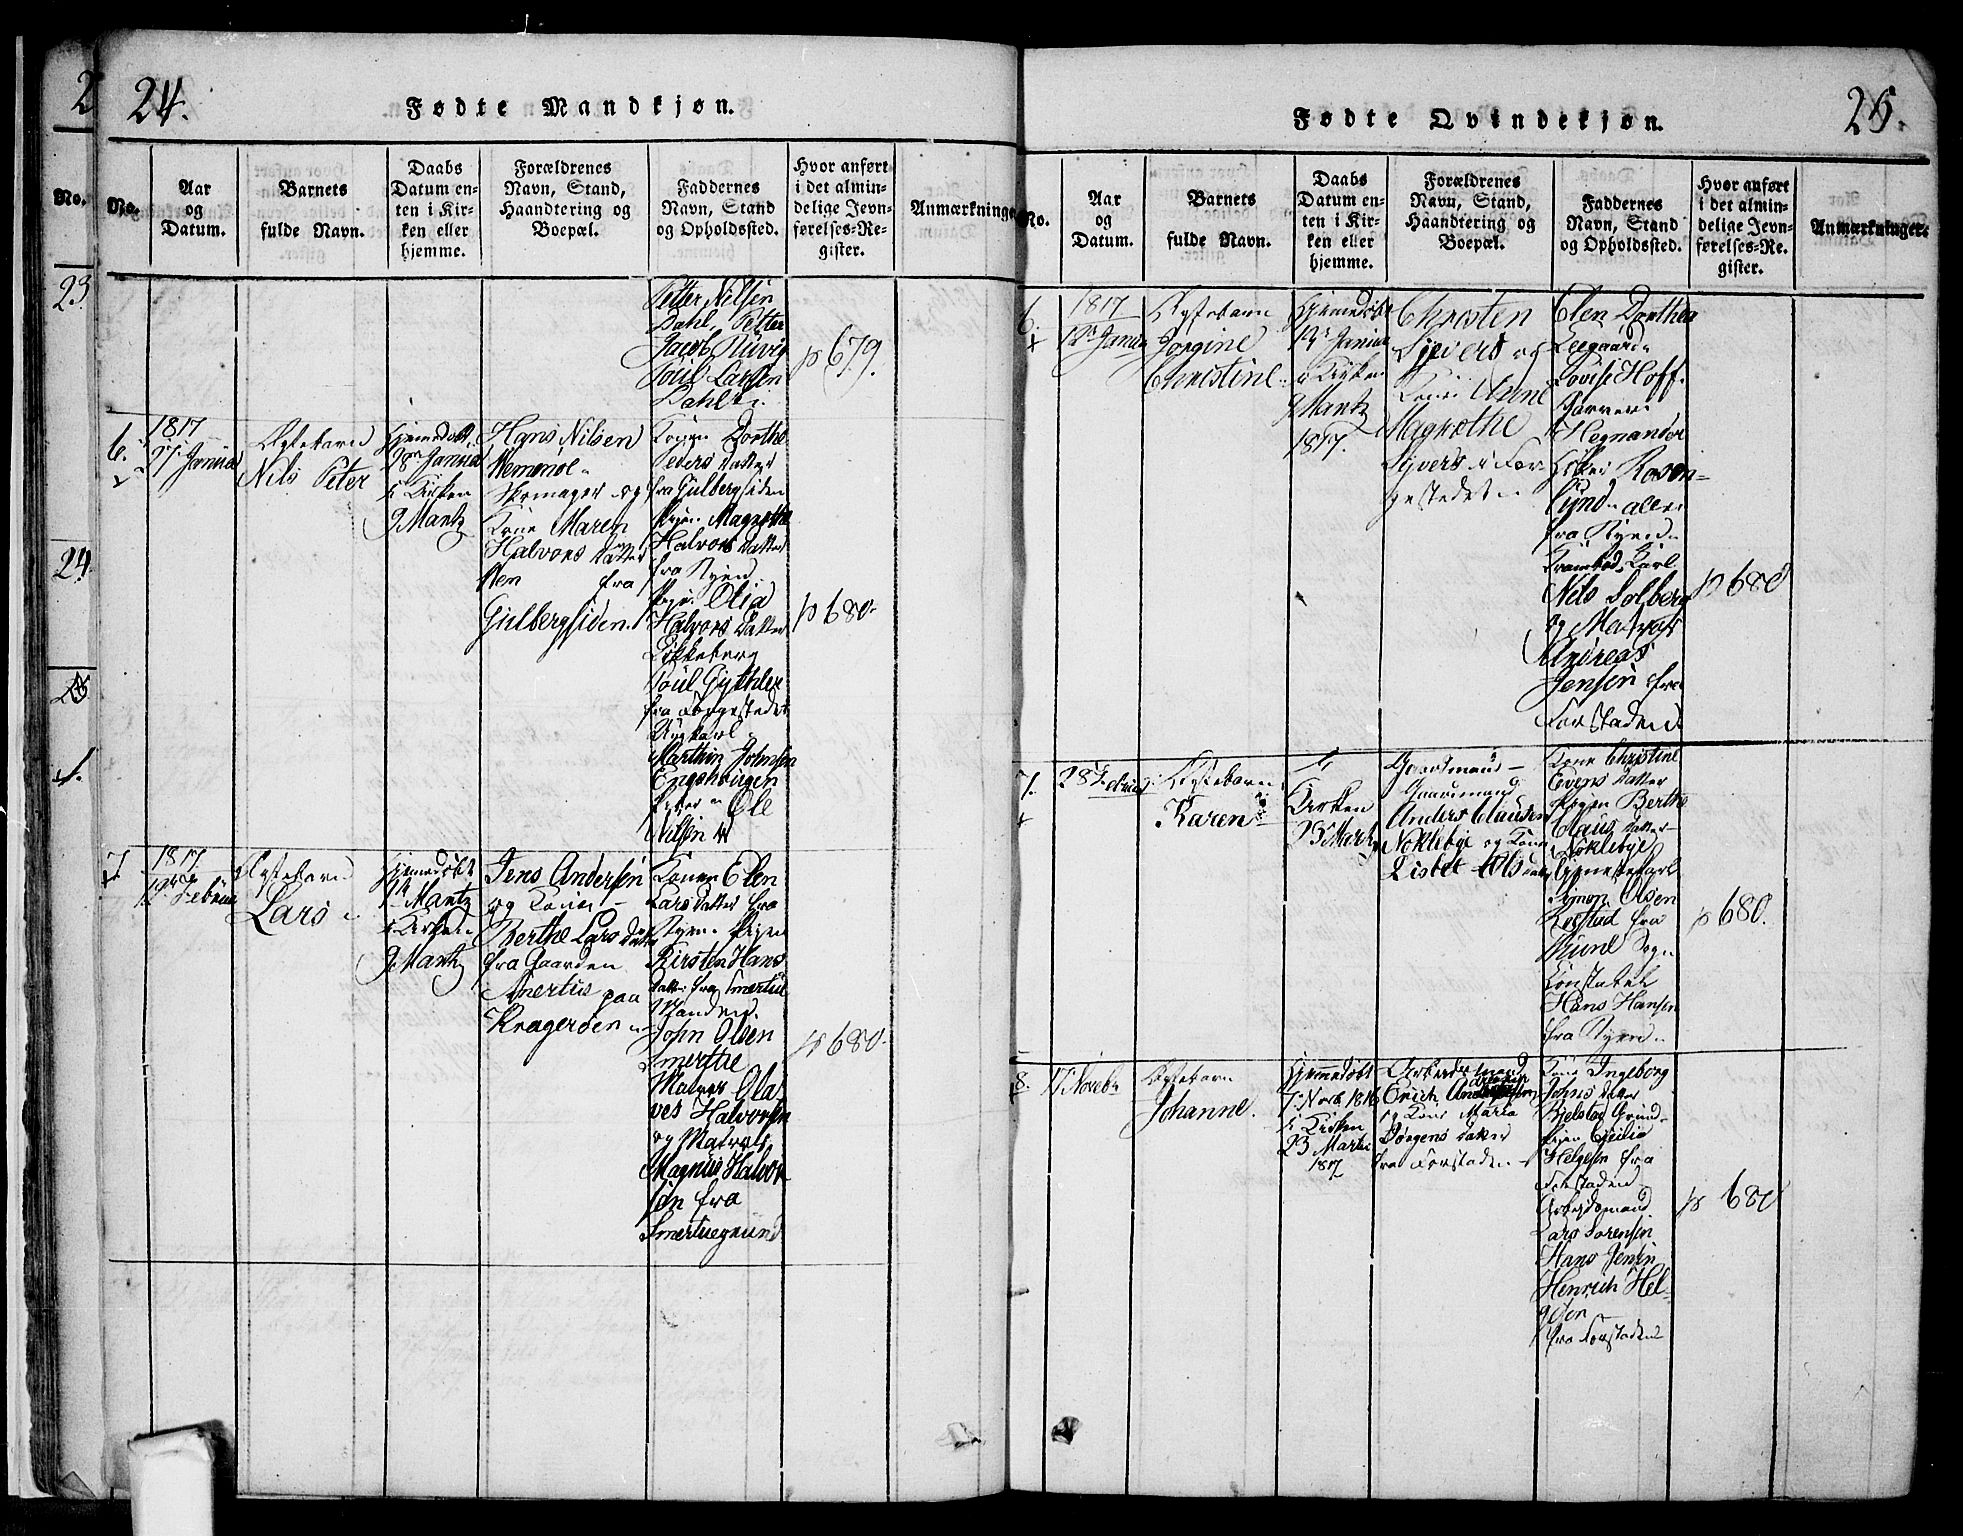 24.
Fødte Mandkjøn.
No.
Aar
og
Datum.
Barnets
fulde Navn.
Daabs
Datum en-
ten i Kir-
ken eller
hjemme.
Forældrenes
Navn, Stand,
Haandtering og
Boepæl.
Faddernes
Navn, Stand
og Opholdssted.
Hvor anført
i det almin-
delige Jevn-
førelses-Re-
gister.
Anmærkninger
Petter Nilsen
Dahl, Petter
Jacob
Poul Larsen
Dahl
p 679.
6.
1817
17 Januar
Ægtebarn
Nils Peter
Hjemedøbt
18 Januar
i Kirken
9 Martz
Hans Nilsen
Skomager og
Kone Maren
Halvors Datter
fra
Gulbergsiden.
Dorthe
Peders Datter
fra Gulbergsiden
Pigen Magrethe
Halvors Datter
fra Byen
Pigen Olia
Halvors Datter
Lökkeberg
Poul Gythler
fra Forgestedet
Ungkarl
Marthin Johnsen
Engehougen
Ole
Nilsen
p 680
7
1817
12 Februar
Ægtebarn
Lars
Hjemedöbt
Martz
i Kirken
9 Martz
Jens Andersen
og Kone
Berthe Lars Datter
fra Gaarden
Smertus paa
Kragerøen
Konen Elen
Lars Datter fra
Byen Pigen
Kirsten Hans
Datter fra Smertue
Manden
John Olsen
Smerthe
Matros Ola-
ves Halvorsen
og Matros
Magnus Halvor
sen fra
Smertuegrund
p 680.
25.
Fødte Qvindekjøn.
No.
Aar
og
Datum.
Barnets
fulde Navn.
Daabs
Datum en-
ten i Kir-
ken eller
hjemme.
Forældrenes
Navn, Stand,
Haandtering og
Boepæl.
Faddernes
Navn, Stand
og Opholdssted.
Hvor anført
i det almin-
delige Jevn-
førelses-Re-
gister.
Anmærkninger.
6.
1817
12 Januar
Ægtebarn
Jorgine
Christine
Hjemedöbt
14 Januar
i Kirken
9 Martz
1817.
Christen
Sivers og
Kone Anne
Magrethe
Sivers i For
gestedet
Elen Dorthea
Leegaard
Lovise Hoff
Garver
Hegnander
Rosen-
lund alle
fra Byen
Krambod Karl
Nils Solberg
og Matros
Andreas
Jensen fra
Forstaden
p 680
7.
28 Februar
Ægtebarn
Karen
i
Kirken
23 Martz
Gaardmand
Anders Clausen
Noklebye og Kone
Lisbet Ols Datter
Kone Christine
Evens Datter
Pigen Berthe
Claus Datter
Noklebye
Tjenestekarl
Symon Olsen
fra
Thune Sogn
Constabel
Hans Hansen
fra Byen
p 680.
8.
17 Novebr
Ægtebarn
Johanne.
Hjemmedöbt
Novb 1816
i Kirken
23 Marti
1817
Arbeidsmand
Erich
og Kone Maria
Jörgens Datter
fra Forstaden
Kone Ingeborg
Johns Datter
Bjelstad Grund
Pigen Cicilia
Helgesen fra
Forstaden
Arbeidsmand
Lars Sorensen
Hans Jensen
Henrich Hel-
gesen
fra Forstaden
p 680
2
No.
23
24
25
1.